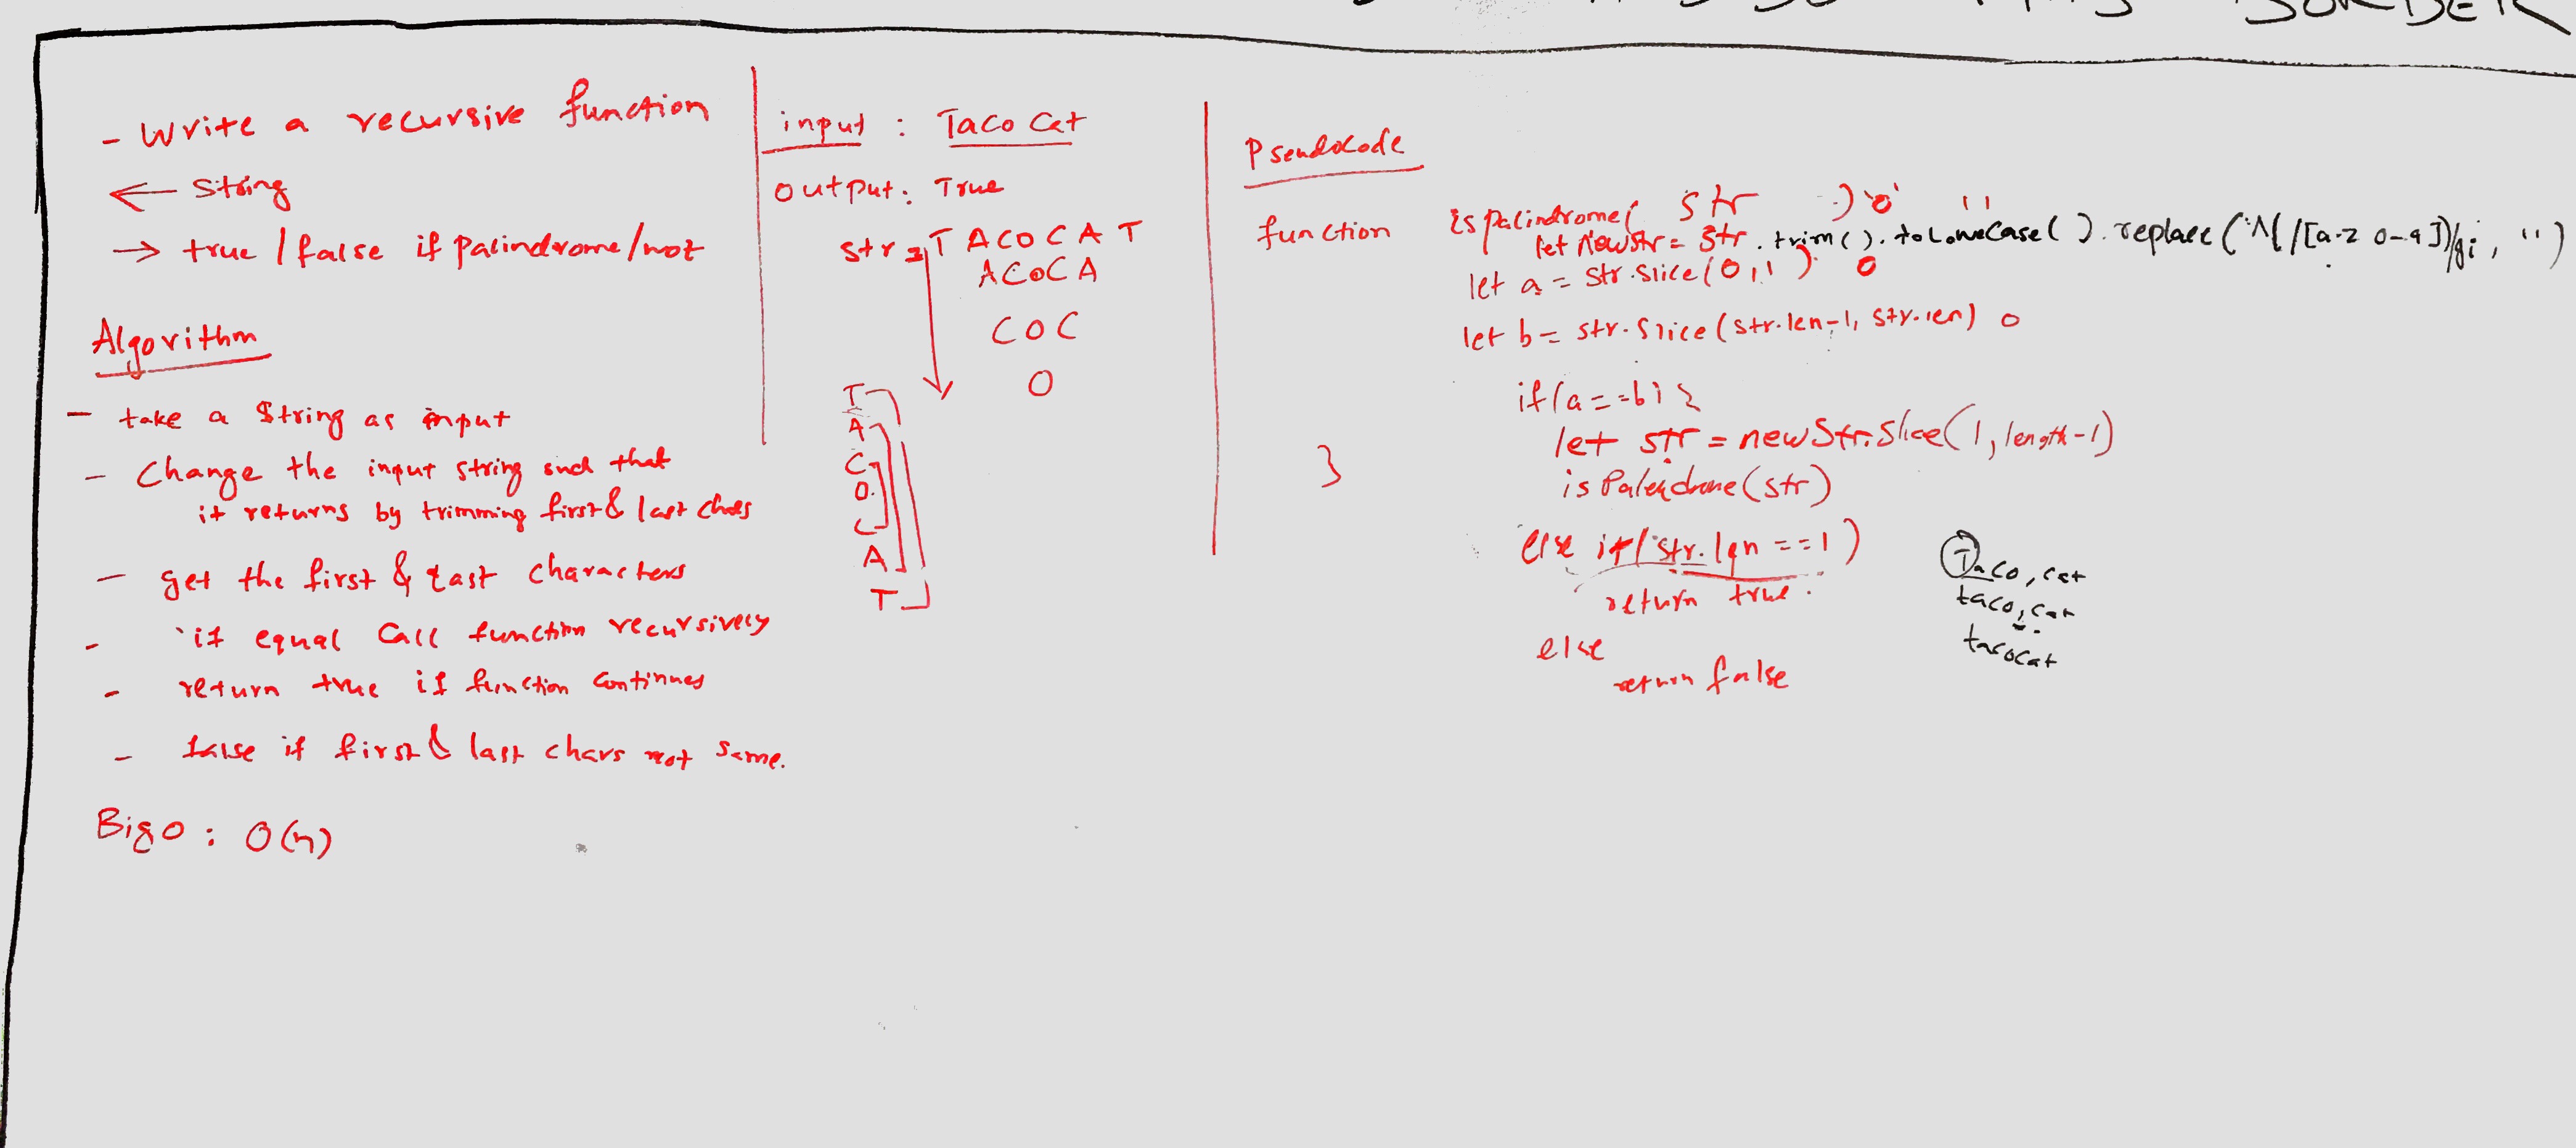 THIS BORDER
- Write a recursive function
← String
→ true / false if Palindrome/not
Algorithm
- take a String as input
- Change the input string such that
it returns by trimming first & last chars
- get the first & last characters
- if equal call function recursively
- return true if function continues
- false if first & last chars not same.
Big O : O(n)
input : Taco Cat
output : True
str = T A C O C A T
A C O C A
C O C
O
T
A
C
O
C
A
T
Pseudocode
function isPalindrome( str )
let newStr = str.trim().toLowerCase().replace(
[a-z 0-9] /gi, '')
let a = str.slice(0,1)
let b = str.slice(str.len-1, str.len)
if(a==b) {
let str = newStr.Slice(1, length-1)
is Palendrome(str)
}
else if(str.len == 1)
return true.
else
return false
Taco, cat
taco, cat
tacocat